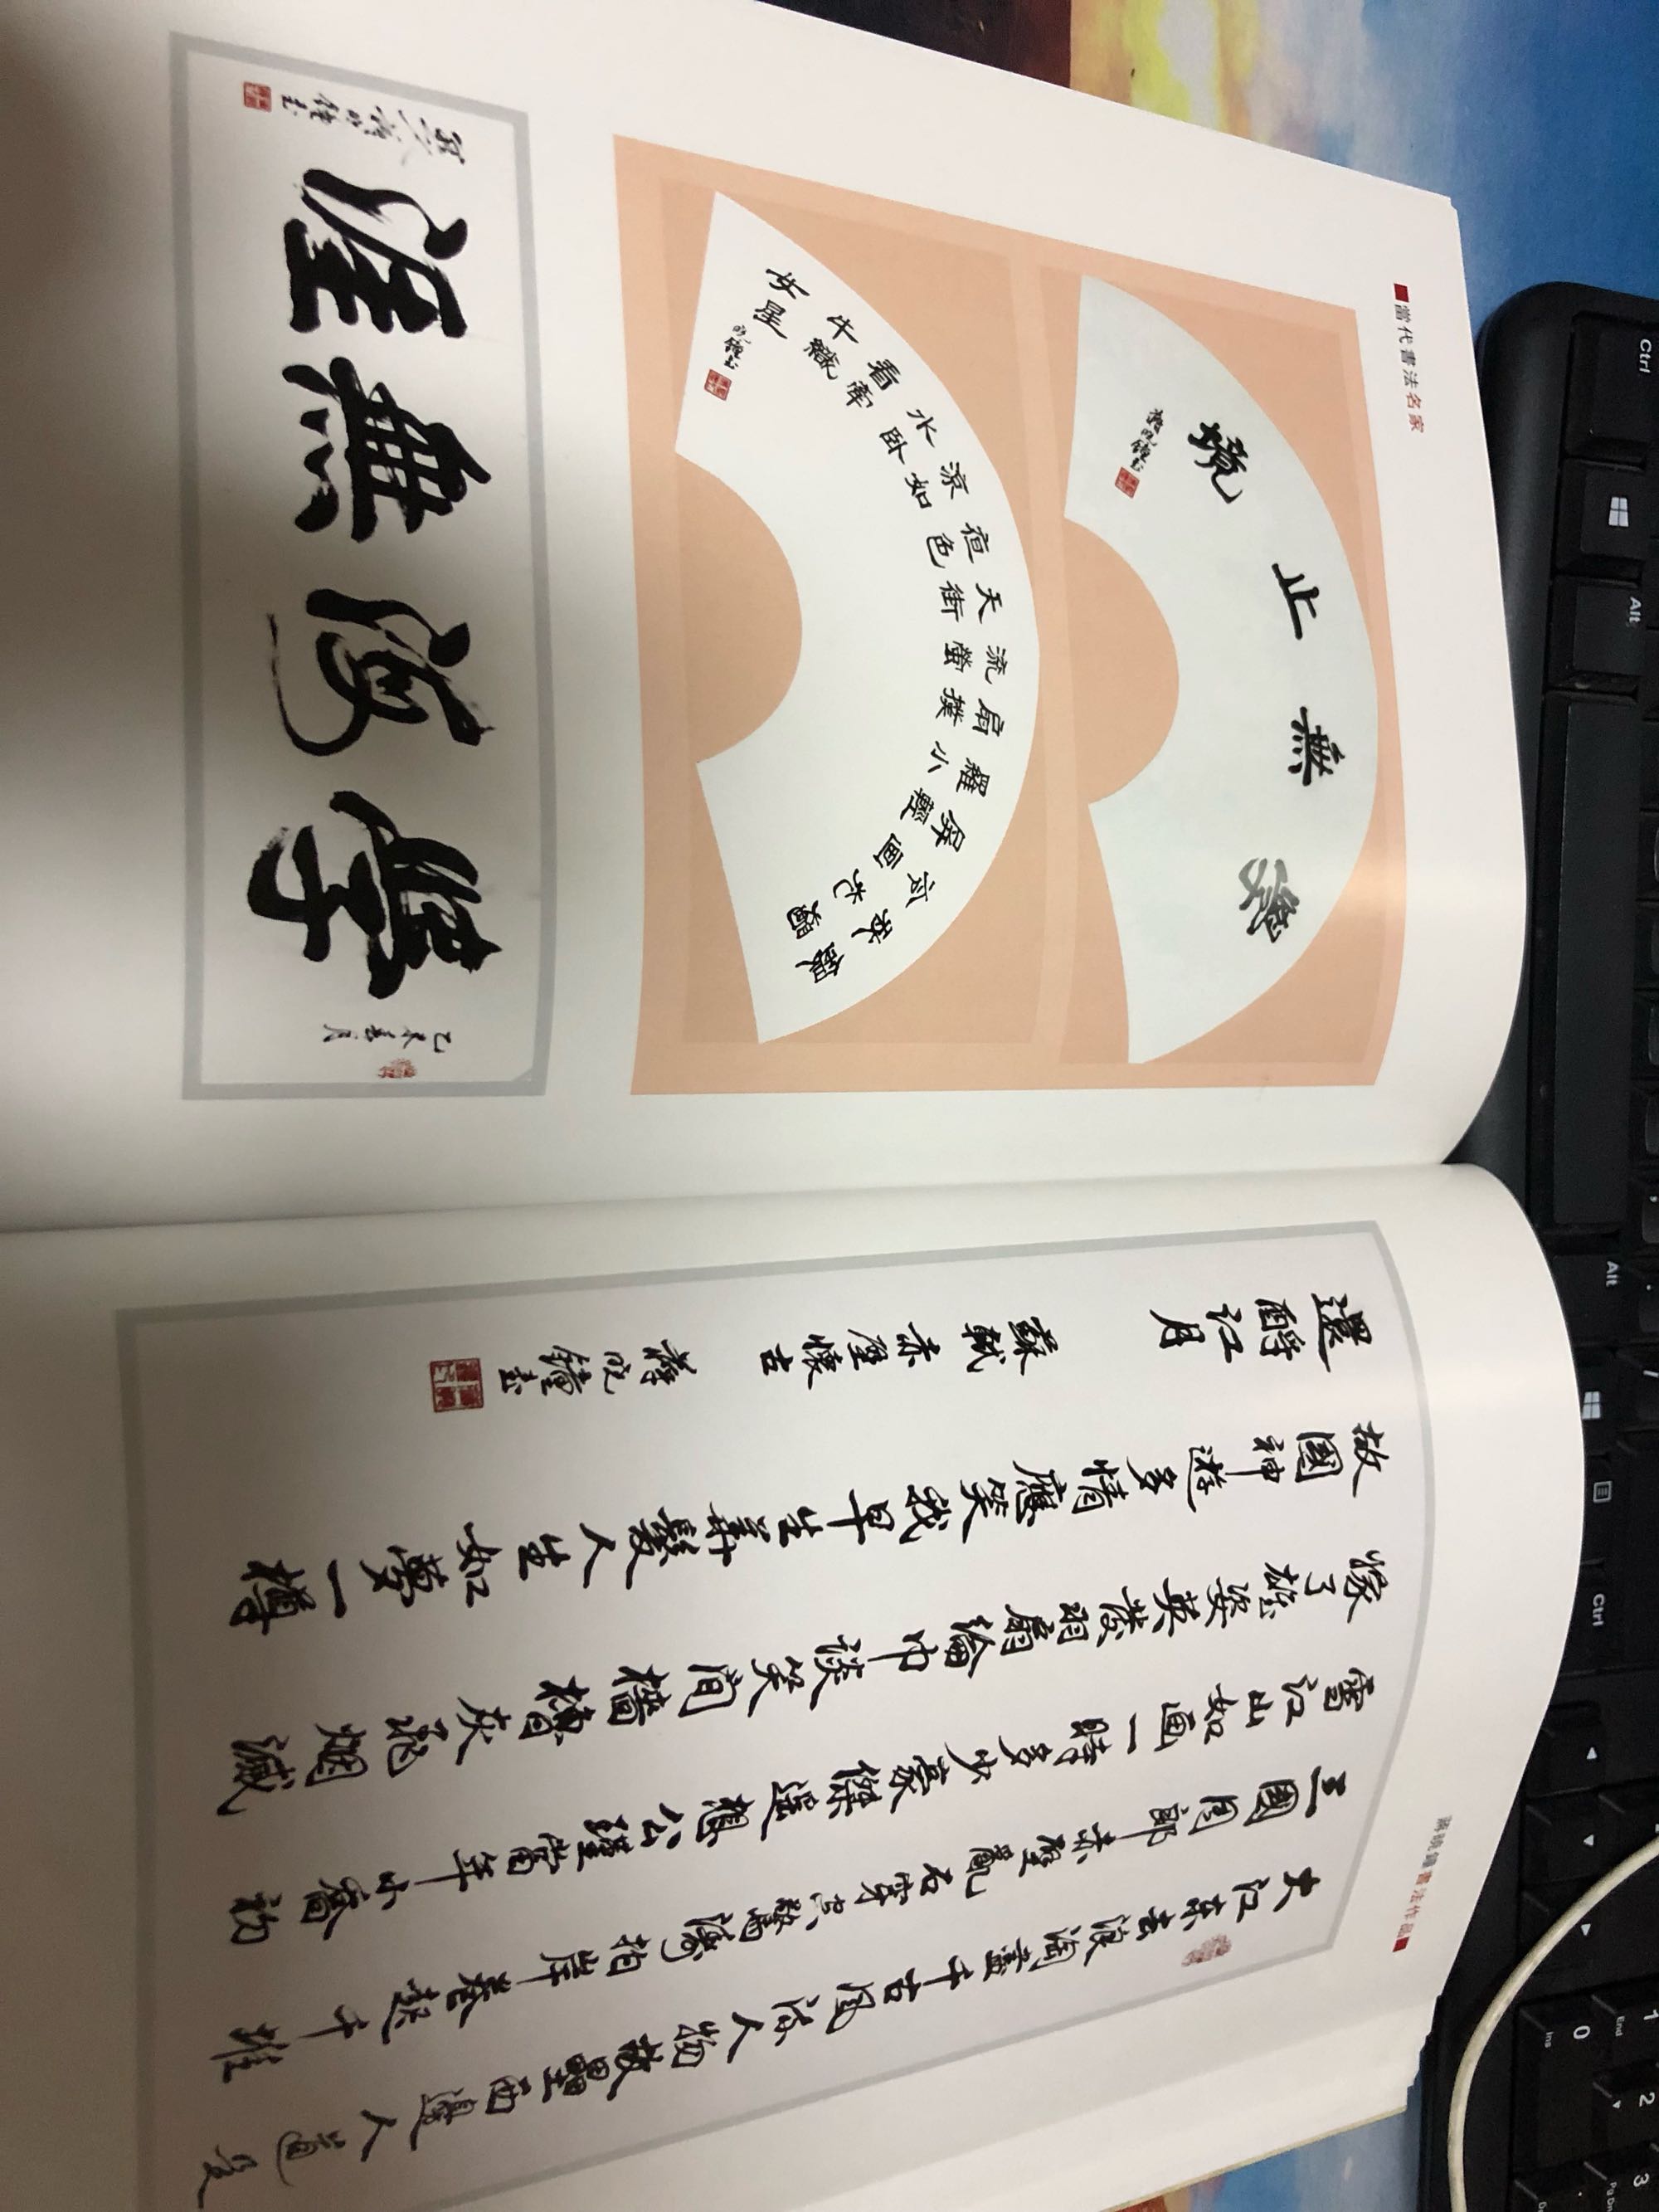 當代書法名家
學無止境
銀燭
秋光
冷畫
屏輕
羅小
扇撲
流螢
天街
夜色
涼如
水卧
看牽
牛織
女星
乙未春月
學海無涯
書法作品
大江東去浪淘盡千古風流人物故壘西邊人道是
三國周郎赤壁亂石穿空驚濤拍岸卷起千堆
雪江山如畫一時多少豪傑遙想公瑾當年小喬初
嫁了雄姿英發羽扇綸巾談笑間檣櫓灰飛烟滅
故國神遊多情應笑我早生華髮人生如夢一樽
還酹江月 蘇軾赤壁懷古
Ctrl
Alt
Alt
Ctrl
0
Ins
1
End
2
3